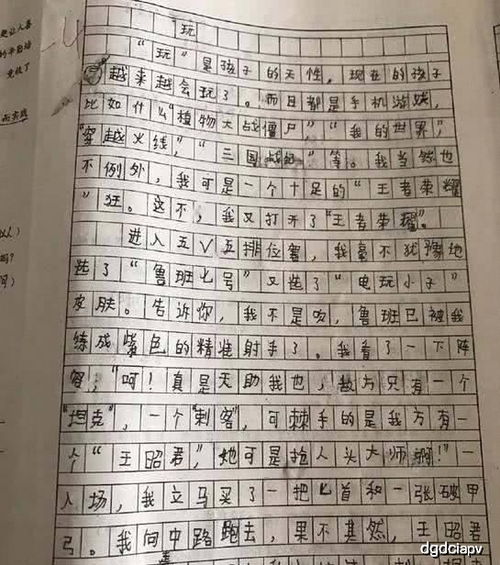 玩
"玩"是孩子的天性，现在的孩子
越来越会玩了。而且都是手机游戏，
比如什么"植物大战僵尸""我的世界"，
"穿越火线"，"三国战纪"等。我当然也
不例外，我可是一个十足的"王者荣耀
"狂。这不，我又打开了"王者荣耀"。
进入五V五排位赛，我毫不犹豫地
选了"鲁班七号"又选了"电玩小子"
皮肤。告诉你，我不是吹，鲁班已被我
练成紫色的精准射手了。我看了一下阵
容，"呵！真是天助我也，敌方只有一个
"坦克"，一个"刺客"，可棘手的是我方有一
个"王昭君"，她可是抢人头大师啊！"一
入场，我立马买了一把匕首和一张破甲
弓。我向中路跑去，果不其然，王昭君
更让人喜
竞收了
以人）
吗？
问）
dgdciapv